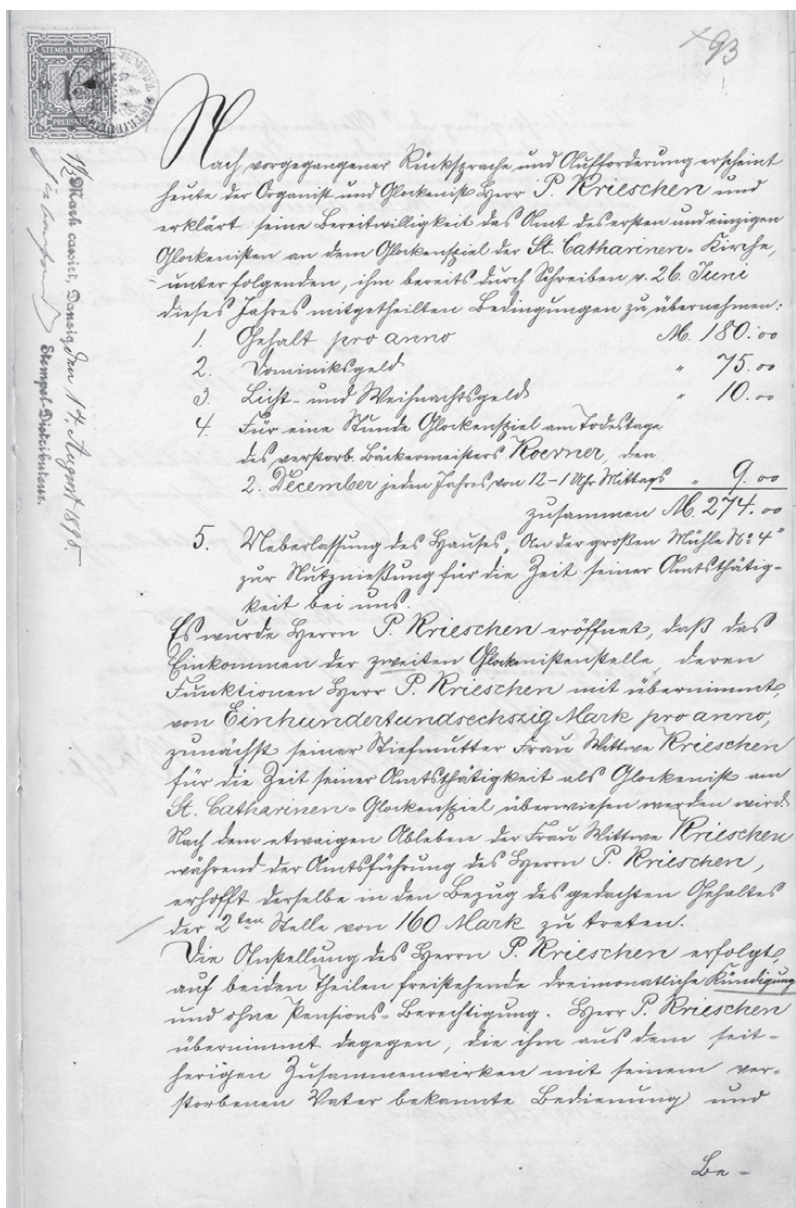 93
STEMPELMARKE
1½
PREUSSEN
1½ Mark cassirt, Danzig den 14. August 1895.
Stempel-Distributeur.
Nach vorgegangener Rücksprache und Aufforderung erscheint
heute der Organist und Glockenist Herr P. Krieschen und
erklärt seine Bereitwilligkeit das Amt des ersten und einzigen
Glockenisten an dem Glockenspiel der St. Catharinen-Kirche,
unter folgenden, ihm bereits durch Schreiben v. 26 Juni
dieses Jahres mitgetheilten Bedingungen zu übernehmen:
1. Gehalt pro anno M. 180.00
2. Dominiksgeld " 75.00
3. Licht- und Weihnachtsgeld " 10.00
4. Für eine Stunde Glockenspiel am Todestage
des verstorb. Bäckermeisters Koerner, den
2. December jeden Jahres von 12-1 Uhr Mittags " 9.00
zusammen M. 274.00
5. Ueberlassung des Hauses „An der großen Mühle No 4"
zur Nutznießung für die Zeit seiner Amtsthätig-
keit bei uns.
Es wurde Herrn P. Krieschen eröffnet, daß das
Einkommen der zweiten Glockenistenstelle, deren
Funktionen Herr P. Krieschen mit übernimmt,
von Einhundertundsechszig Mark pro anno,
zunächst seiner Stiefmutter Frau Wittwe Krieschen
für die Zeit seiner Amtsthätigkeit als Glockenist am
St. Catharinen-Glockenspiel überwiesen werden wird.
Nach dem etwaigen Ableben der Frau Wittwe Krieschen
während der Amtsführung des Herrn P. Krieschen,
erhofft derselbe in den Bezug des gedachten Gehaltes
der 2ten Stelle von 160 Mark zu treten.
Die Anstellung des Herrn P. Krieschen erfolgt,
auf beiden Theilen freistehende dreimonatliche Kündigung
und ohne Pensions-Berechtigung. Herr P. Krieschen
übernimmt dagegen, die ihm aus dem seit-
herigen Zusammenwirken mit seinem ver-
storbenen Vater bekannte Bedienung und
Be-